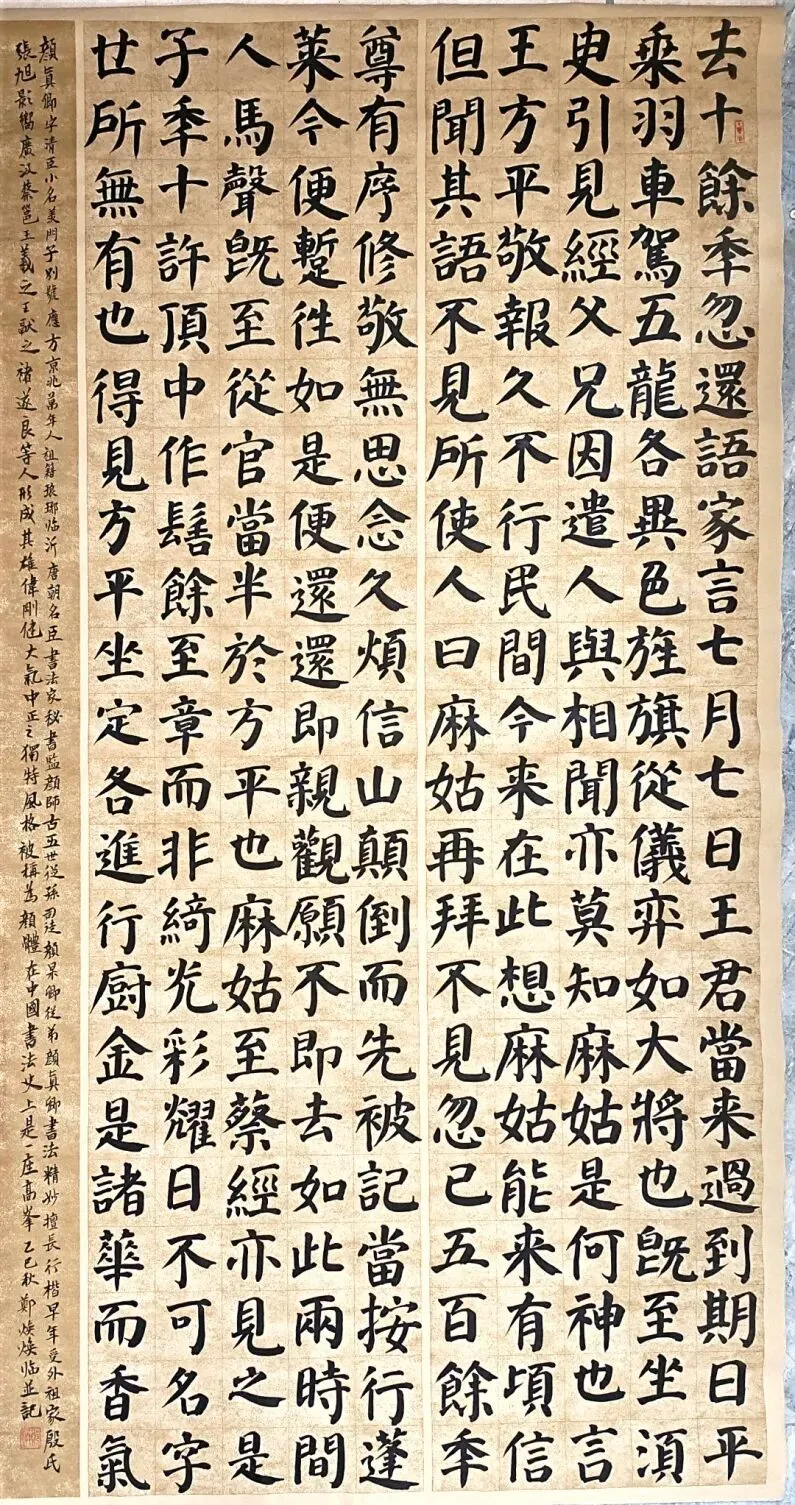 去十餘秊忽還語家言七月七日王君當来過到期日平
乗羽車駕五龍各異色旌旗從儀弈如大將也既至坐湏
史引見經父兄因遣人與相聞亦莫知麻姑是何神也言
王方平敬報久不行民間今来在此想麻姑能来有頃信
但聞其語不見所使人曰麻姑再拜不見忽已五百餘秊
尊有序修敬無思念久煩信山顛倒而先被記當按行蓬
莱今便蹔徃如是便還還即親觀願不即去如此兩時間
人馬聲既至從官當半於方平也麻姑至蔡經亦見之是
子秊十許頂中作髻餘至章而非綺光彩耀日不可名字
廿所無有也得見方平坐定各進行厨金是諸華而香氣
顔真卿字清臣小名羡門子别號應方京兆萬年人祖籍琅琊临沂唐朝名臣書法家秘書監顔師古五世從孫司徒顔杲卿從弟顔真卿書法精妙擅長行楷早年受外祖家殷氏
張旭影響廣汲蔡邕王羲之王献之褚遂良等人形成其雄偉剛健大氣中正之獨特風格被稱為顔體在中國書法史上是一座高峯乙巳秋鄭焕焕临並記